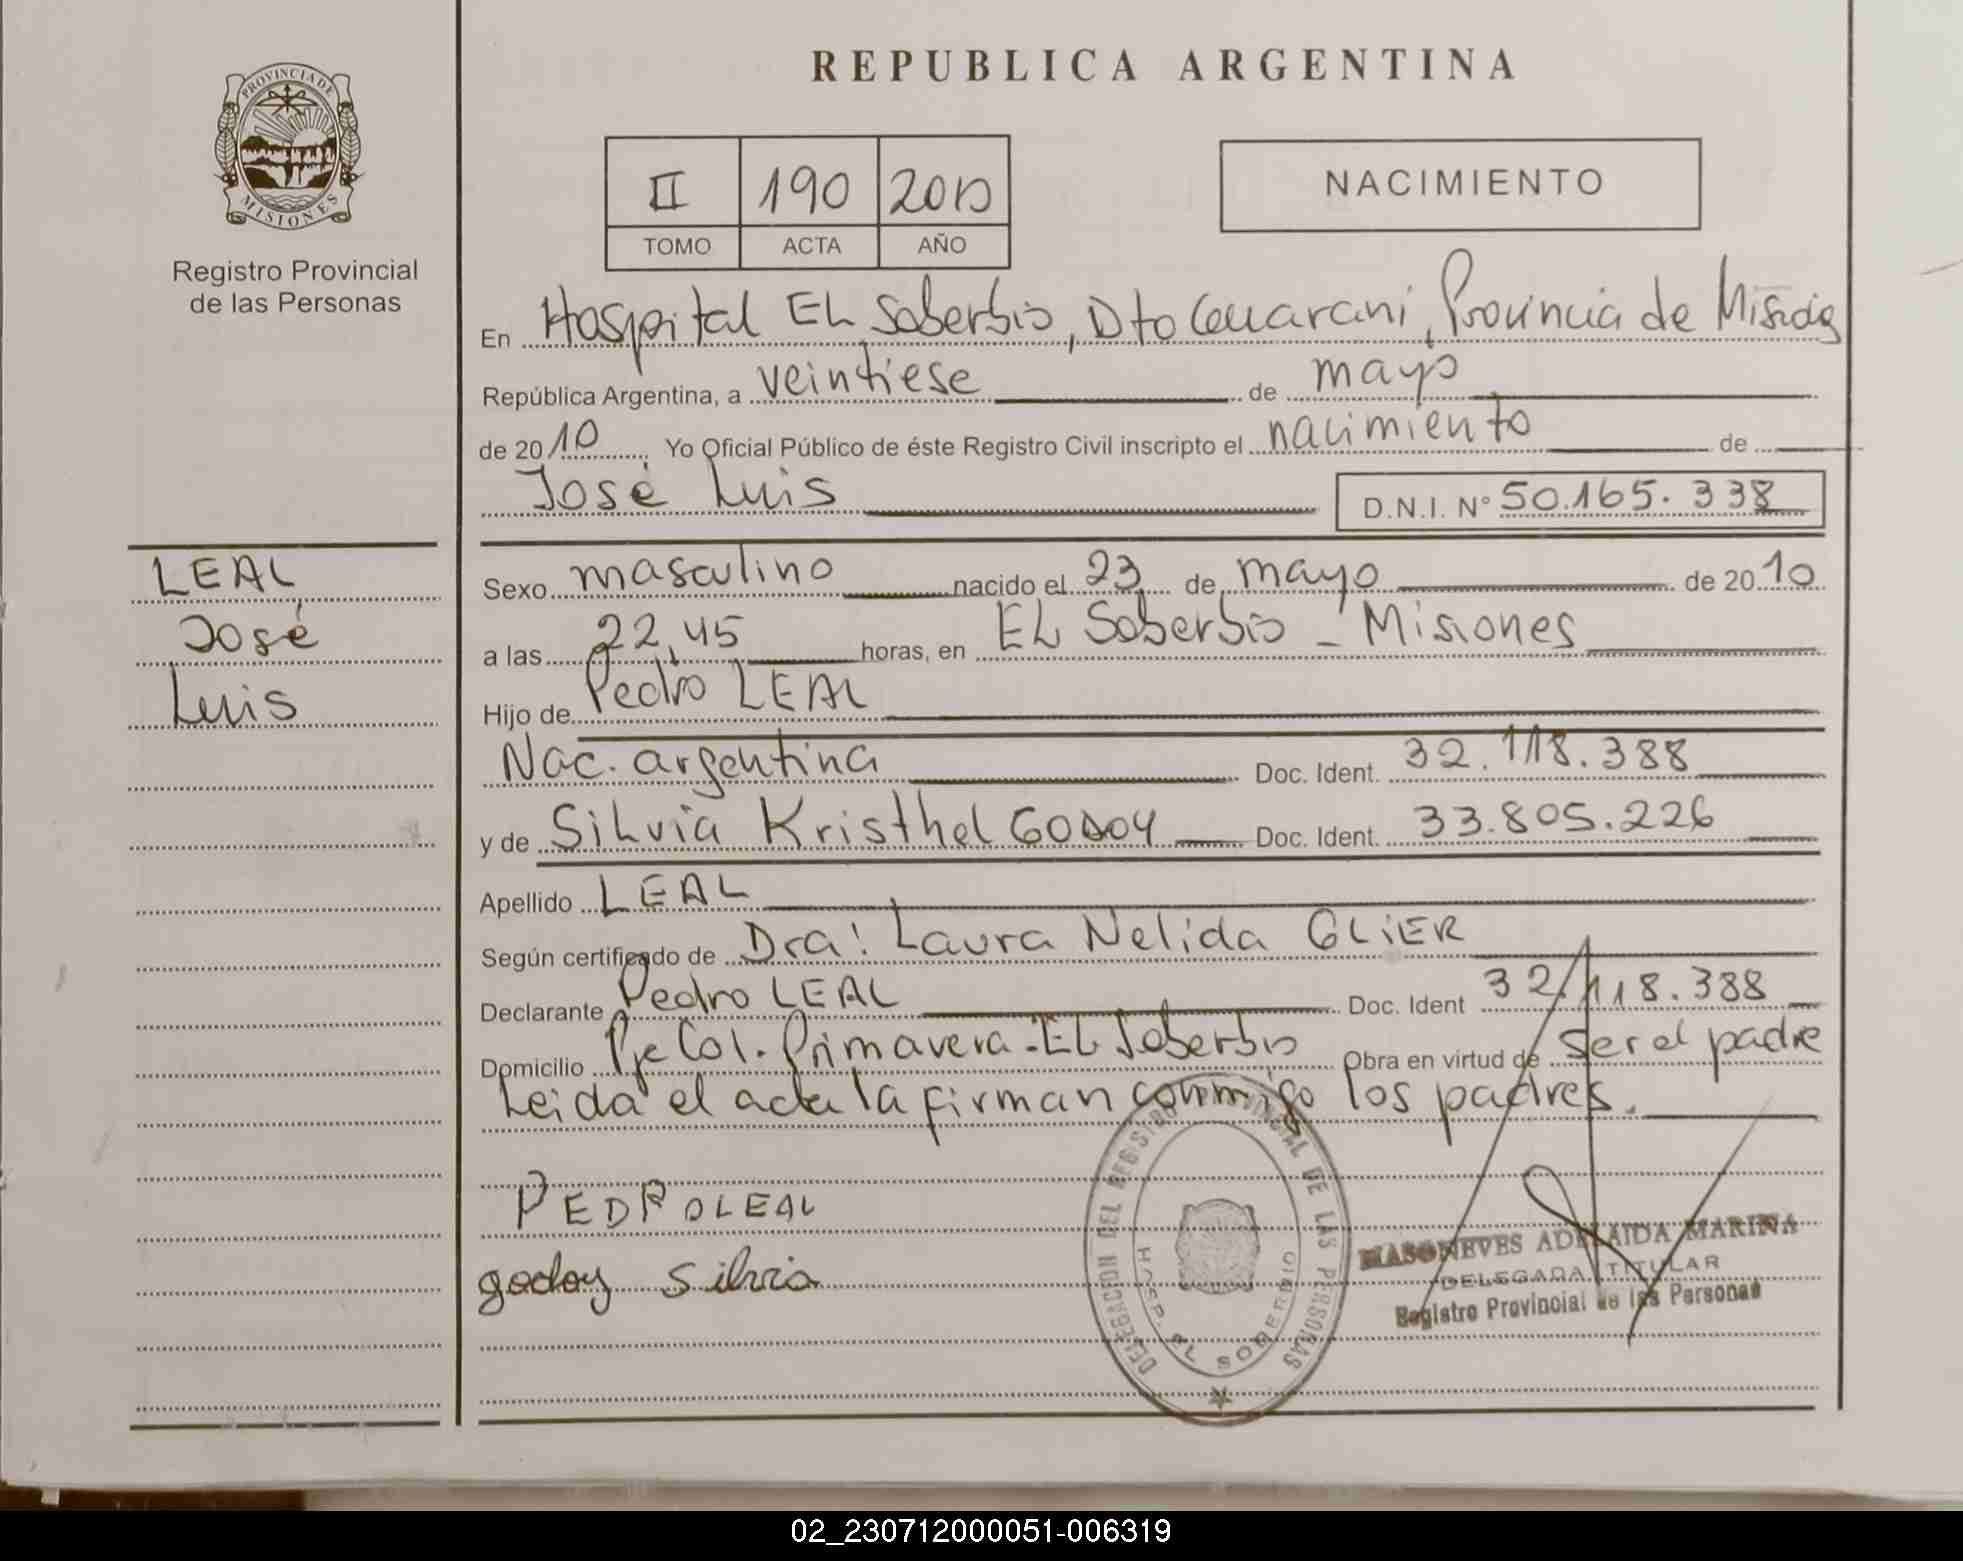 PROVINCIA DE
MISIONES
Registro Provincial
de las Personas
LEAL
José
Luis
REPUBLICA ARGENTINA
II 190 2010
TOMO ACTA AÑO
NACIMIENTO
En Hospital EL Soberbio, Dto Guarani, Provincia de Misiones
República Argentina, a veintiese de mayo
de 2010 Yo Oficial Público de éste Registro Civil inscripto el nacimiento de
José Luis D.N.I. N° 50.165.338
Sexo masculino nacido el 23 de mayo de 2010
a las 22,45 horas, en EL Soberbio - Misiones
Hijo de Pedro LEAL
Nac. argentina Doc. Ident. 32.118.388
y de Silvia Kristhel GODOY Doc. Ident. 33.805.226
Apellido LEAL
Según certificado de Dra: Laura Nelida GLIER
Declarante Pedro LEAL Doc. Ident 32.118.388
Domicilio Pje Col. Primavera - EL Soberbio Obra en virtud de ser el padre
Leida el acta la firman conmigo los padres.
PEDRO LEAL
godoy silvia
DELEGACION DEL REGISTRO PROVINCIAL DE LAS PERSONAS
HOSP. EL SOBERBIO
MASONEVES ADELAIDA MARINA
DELEGADA TITULAR
Registro Provincial de las Personas
02_230712000051-006319